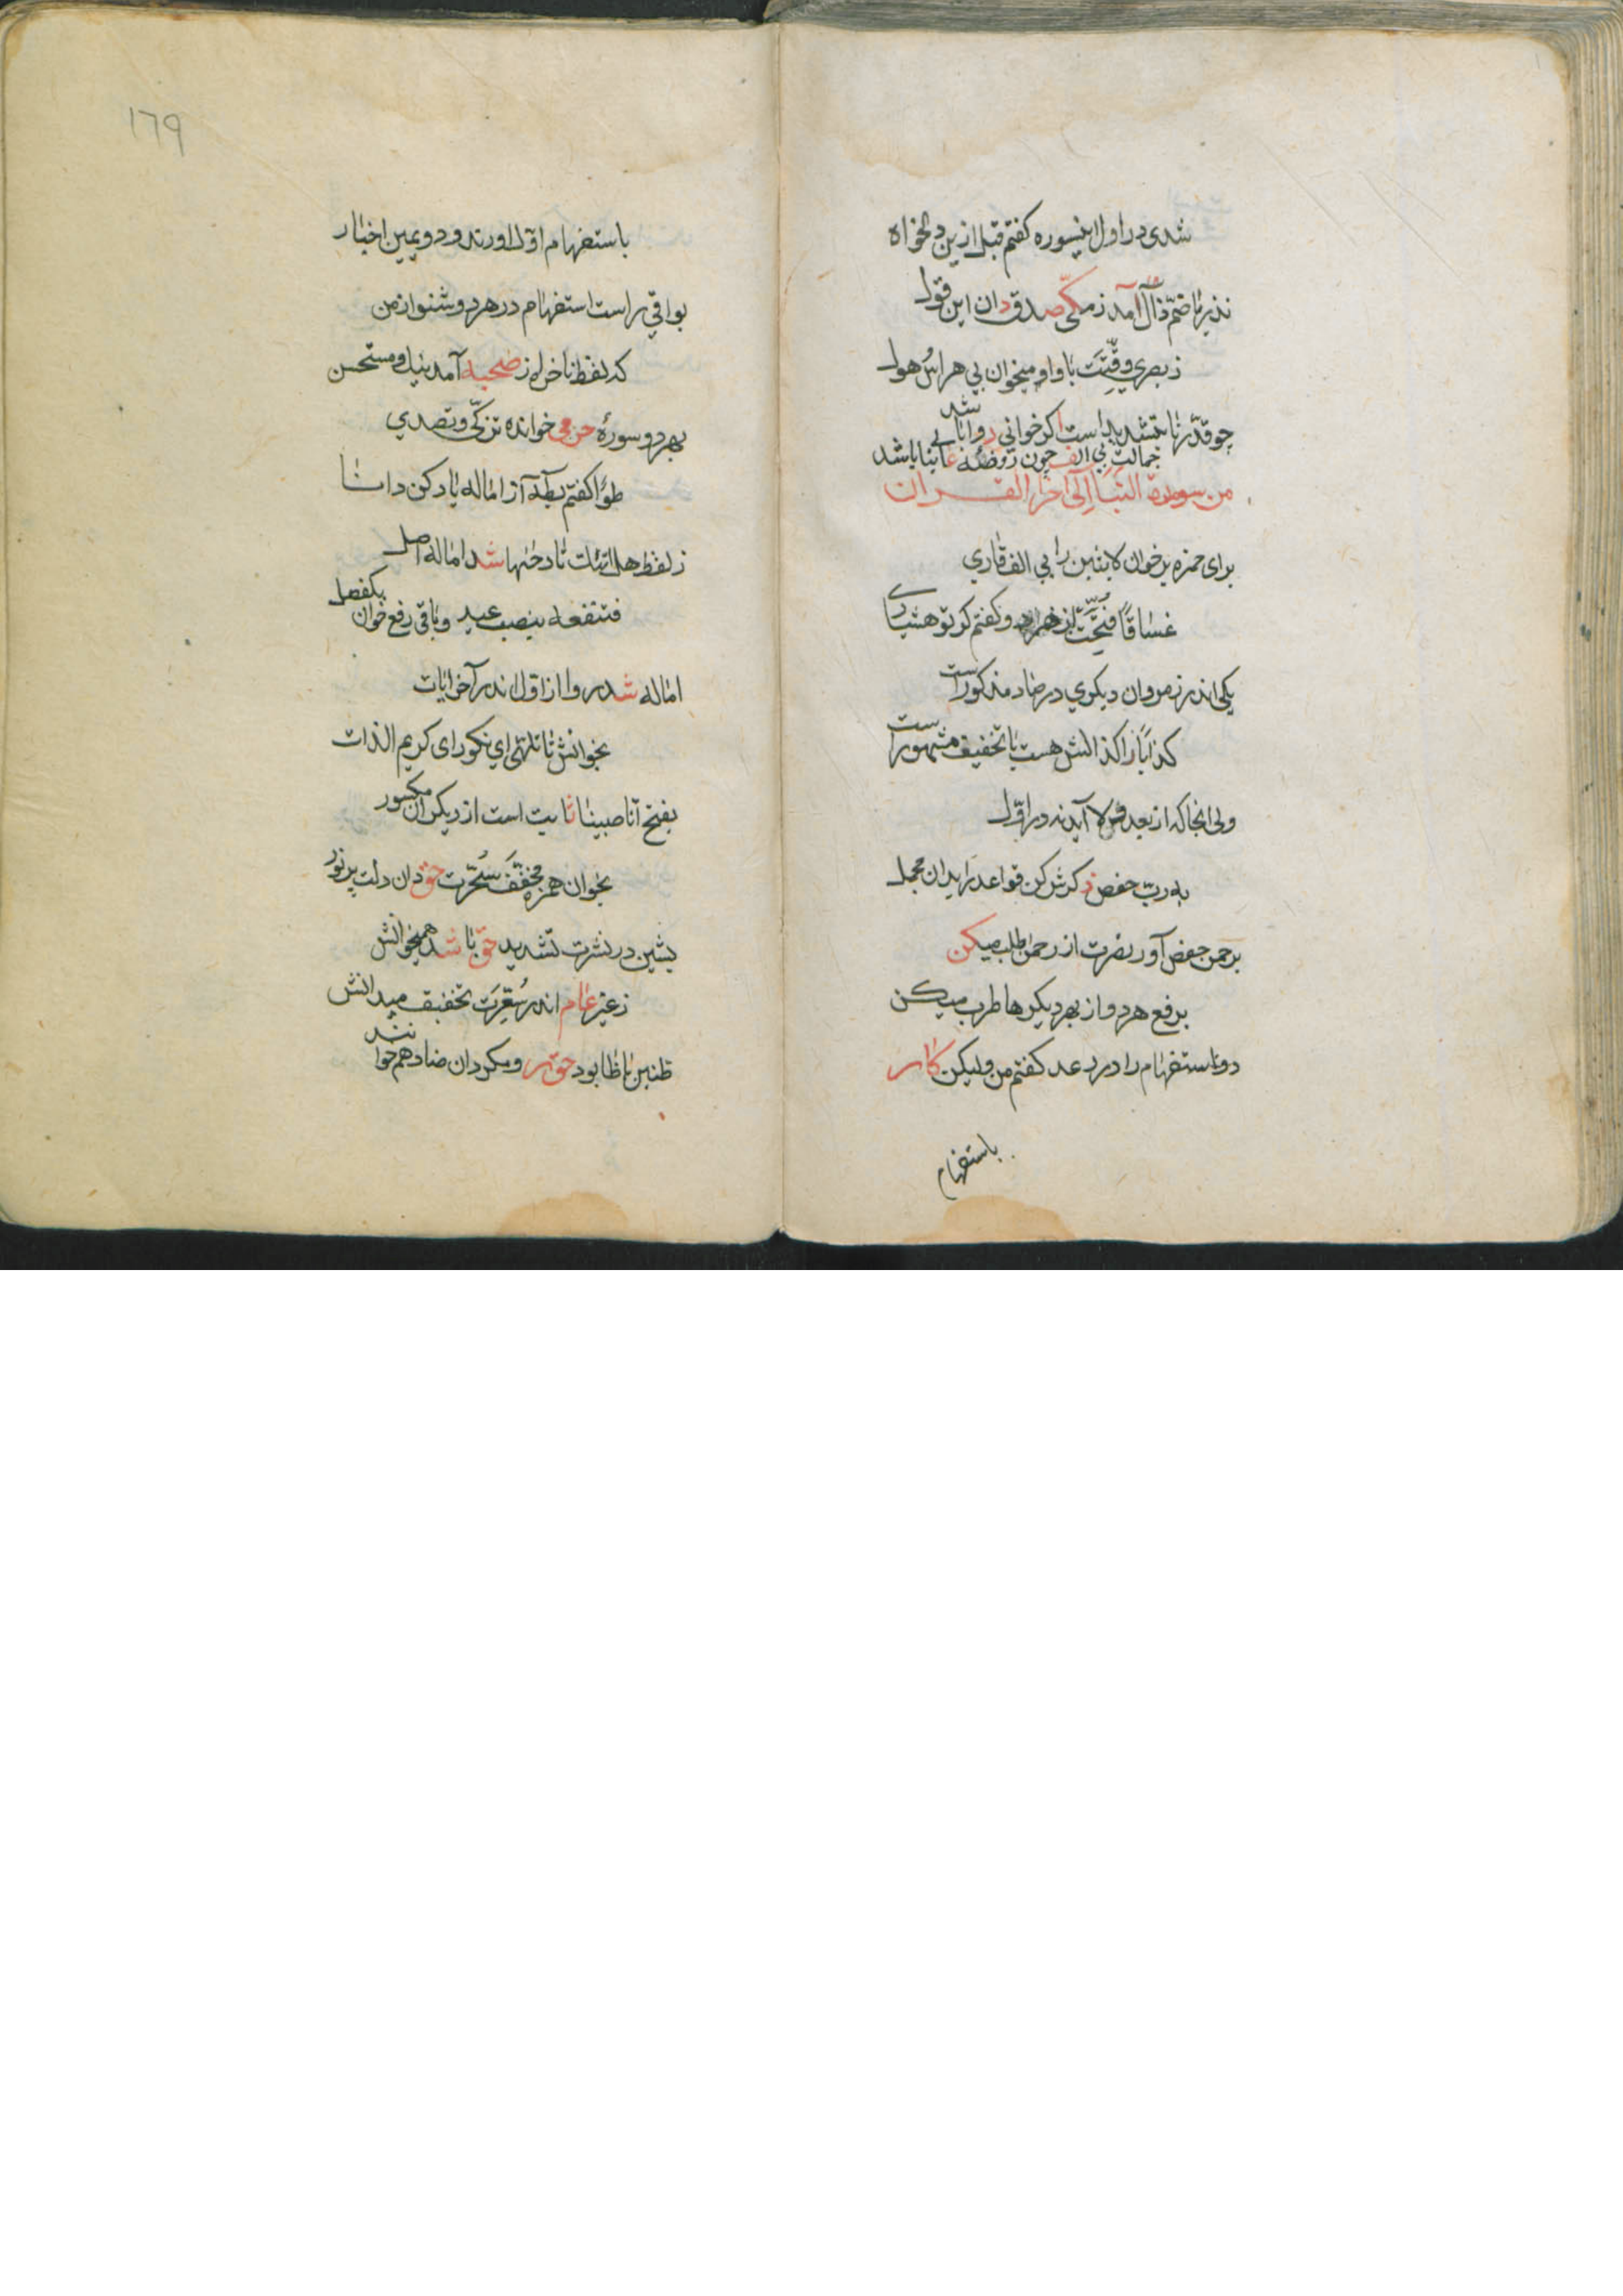 شدی در اول اینسوره کفتم قبل ازین دلخواه
نذیر با ضمّ ذال آمد ز مکّی صدق دان این قول
ز بصری وقّتت با واو میخوان بی هراس هول
چو قدّرنا بتشدید است اکر خوانی روا باشد
جمالت بی الف چون روضهٔ عابنا باشد
من سورة النبأ الی آخر القرآن
برای حمزه برخوان لابثین را بی الف قاری
غساقًا فتّحت از زمر و کفتم کر تو هشیاری
یکی اندر زمر وان دیکری در صاد مذکور است
کذابًا را کذالش هست با تخفیف مشهور است
ولی انجا که از بعد ولا آید نه در اوّل
به ربّ خفض ذکرش کن قواعد را بدان مجمل
برحمن خفض آور نصرت از رحمن طلب میکن
برفع هر دو از بهر دیکرها طرب میکن
دو تا ستفهام را در رعد کفتم من ولیکن کار
باستفهام
١٦٩
باستفهام اوّل اورند و دویمین اخبار
بواقی راست استفهام در هر دو شنو از من
که لفظ ناخره ز صحبه آمد نیک و مستحسن
بهر دو سورهٔ حرمی خوانده تزکّی و تصدی
طوًا کفتم بطه از اماله یاد کن دانا
ز لفظ هل اتیک تا دحیها شد اماله اصل
فتنفعه بنصب عید و باقی رفع خوان یکفصل
اماله شد روا از اول اندر آخر ایات
بخوانش تا تلهّی ای نکورای کریم الذات
بفتح انا صببنا ثابت است از دیکران مکسور
بخوان هم مخفّف سُجّرت حق دان دلت پر نور
بشین در نشرت تشدید حق با شد همیخوانش
ز غیر عام اندر سُعِّرَت تخفیف میدانش
ظنین با ظا بود حق ر و مکر دان ضاد هم خوانند